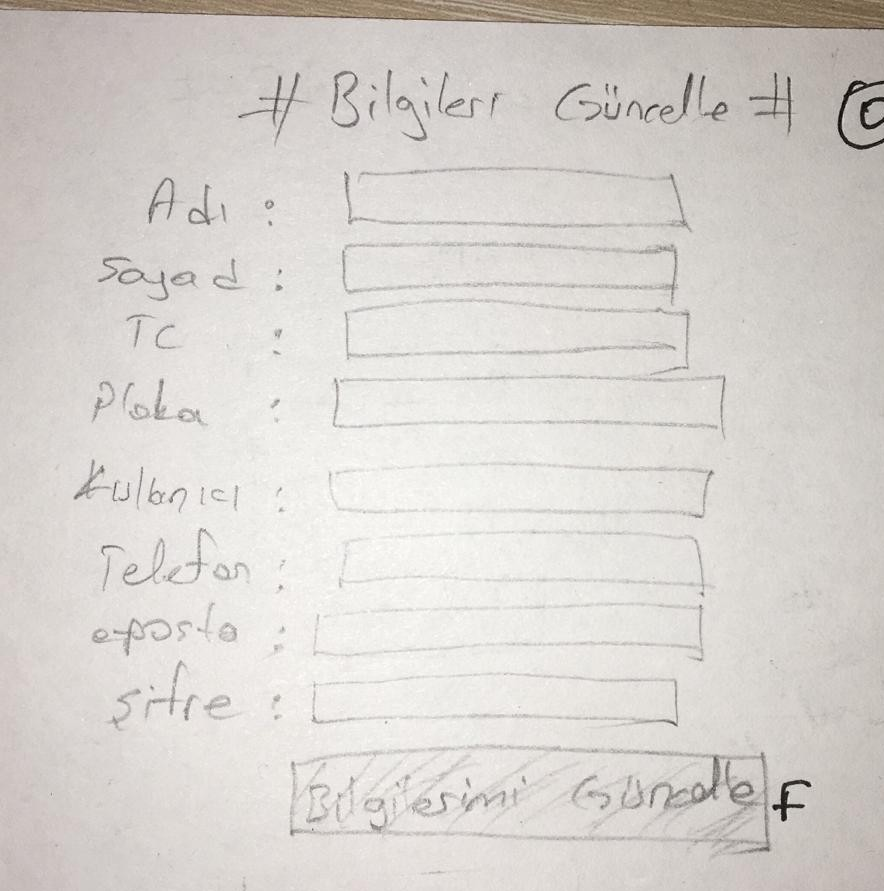 # Bilgileri Güncelle #
Adı :
Soyad :
TC :
Plaka :
Kullanıcı :
Telefon :
e-posta :
şifre :
Bilgilerimi Güncelle F